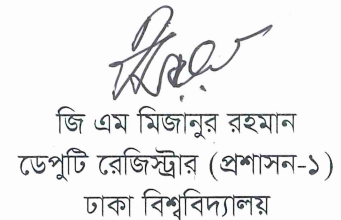 জি এম মিজানুর রহমান
ডেপুটি রেজিস্ট্রার (প্রশাসন-১)
ঢাকা বিশ্ববিদ্যালয়